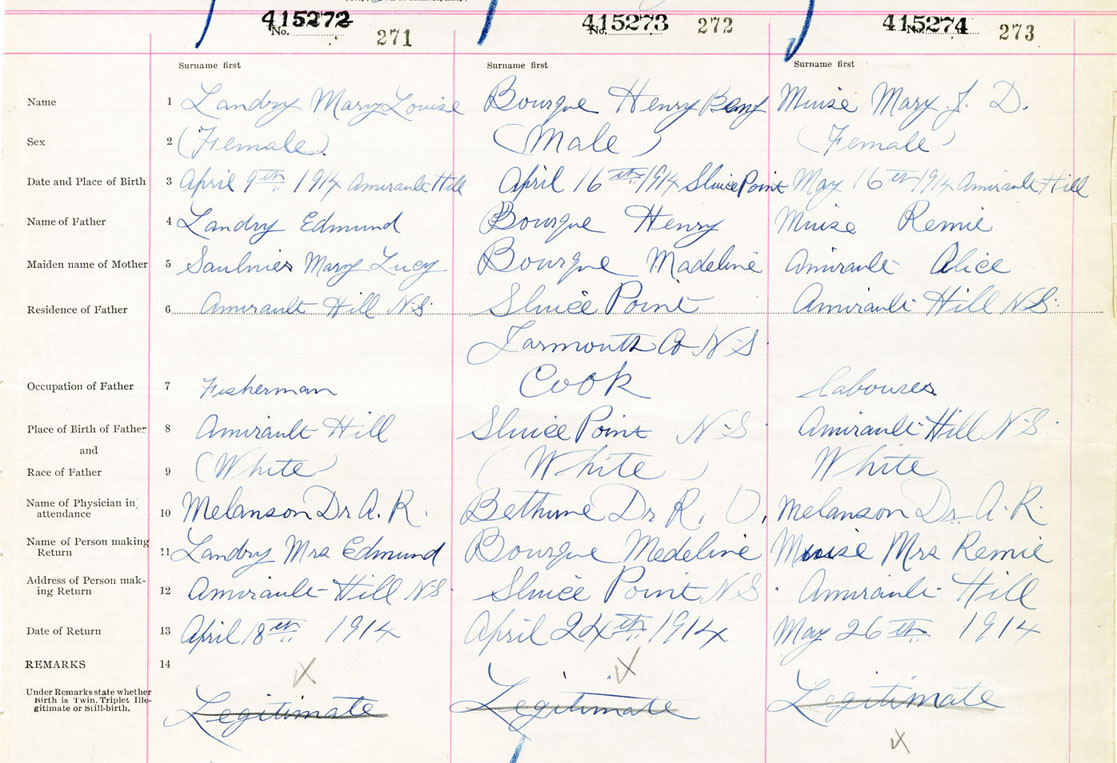 415272 415273 415274
No. 271 No. 272 No. 273
Surname first Surname first Surname first
Name 1 Landry Mary Louise Bourque Henry Benj Muise Mary J. D.
Sex 2 (Female) (Male) (Female)
Date and Place of Birth 3 April 9th 1914 Amirault Hill April 16th 1914 Sluice Point May 16th 1914 Amirault Hill
Name of Father 4 Landry Edmund Bourque Henry Muise Remie
Maiden name of Mother 5 Saulnier Mary Lucy Bourque Madeline Amirault Alice
Residence of Father 6 Amirault Hill N.S. Sluice Point Amirault Hill N.S.
Yarmouth Co N-S
Occupation of Father 7 Fisherman Cook labourer
Place of Birth of Father 8 Amirault Hill Sluice Point N-S Amirault Hill N.S.
and
Race of Father 9 (White) (White) White
Name of Physician in
attendance 10 Melanson Dr A. R. Bethune Dr R. O. Melanson Dr. A. R.
Name of Person making
Return 11 Landry Mrs Edmund Bourque Medeline Muise Mrs Remie
Address of Person mak-
ing Return 12 Amirault Hill N.S. Sluice Point N.S. Amirault Hill
Date of Return 13 April 18th 1914 April 24th 1914 May 26th 1914
REMARKS 14 X X
Under Remarks state whether
Birth is Twin, Triplet Ille-
gitimate or Still-birth. Legitimate Legitimate Legitimate
X